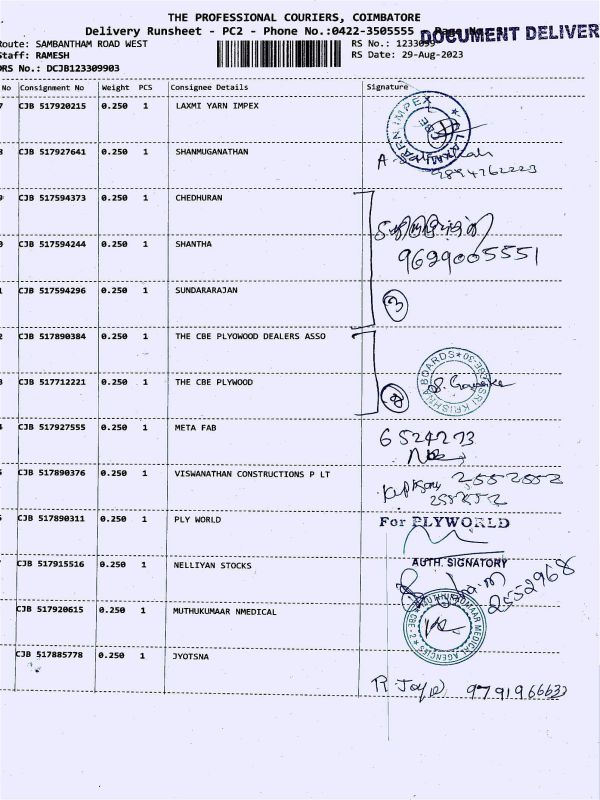 THE PROFESSIONAL COURIERS, COIMBATORE
Delivery Runsheet - PC2 - Phone No.:0422-3505555
DOCUMENT DELIVER
Route: SAMBANTHAM ROAD WEST
RS No.: 1233099
Staff: RAMESH
RS Date: 29-Aug-2023
DRS No.: DCJB123309903
No Consignment No Weight PCS Consignee Details Signature
7 CJB 517920215 0.250 1 LAXMI YARN IMPEX
8 CJB 517927641 0.250 1 SHANMUGANATHAN
9894762223
9 CJB 517594373 0.250 1 CHEDHURAN
0 CJB 517594244 0.250 1 SHANTHA
9629005551
1 CJB 517594296 0.250 1 SUNDARARAJAN
3
2 CJB 517890384 0.250 1 THE CBE PLYOWOOD DEALERS ASSO
SRI KRISHNA BOARDS ★ CBE-30 ★
3 CJB 517712221 0.250 1 THE CBE PLYWOOD
2
4 CJB 517927555 0.250 1 META FAB
6524273
5 CJB 517890376 0.250 1 VISWANATHAN CONSTRUCTIONS P LT
2552552
6 CJB 517890311 0.250 1 PLY WORLD
For PLYWORLD
AUTH. SIGNATORY
7 CJB 517915516 0.250 1 NELLIYAN STOCKS
2552968
CJB 517920615 0.250 1 MUTHUKUMAAR NMEDICAL
MUTHUKUMAAR MEDICAL AGENCIES ★ CBE - 2 ★
CJB 517885778 0.250 1 JYOTSNA
R. Jaya 9791966632